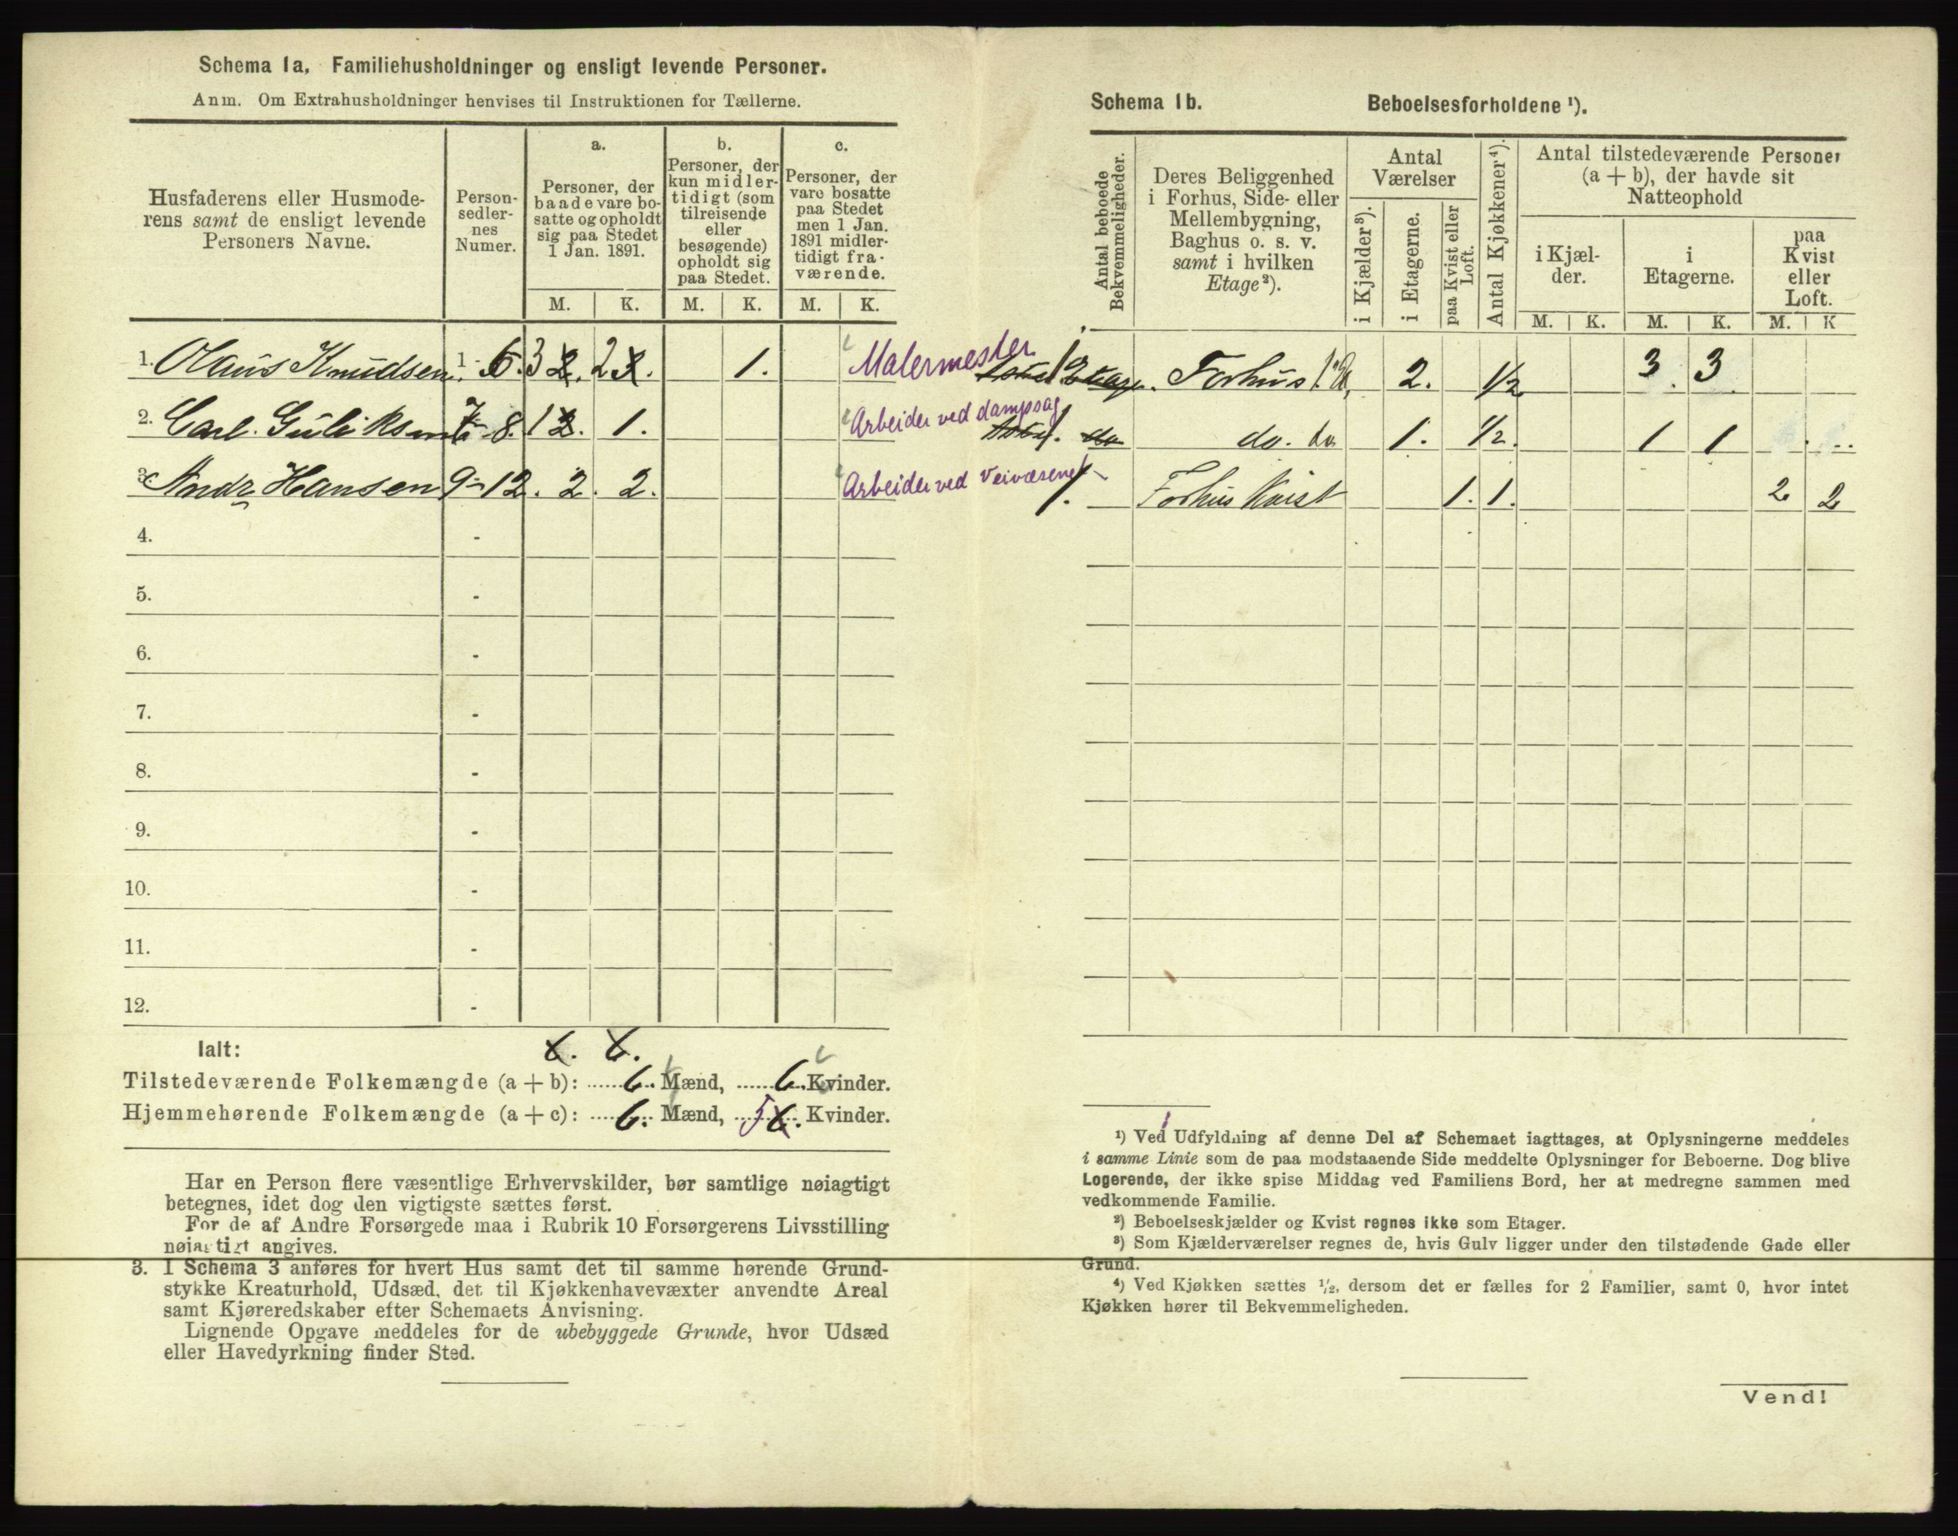 Schema 1a. Familiehusholdninger og ensligt levende Personer.
Anm. Om Extrahusholdninger henvises til Instruktionen for Tællerne.
Husfaderens eller Husmode-
rens samt de ensligt levende
Personers Navne.
Person-
sedler-
nes
Numer.
a.
Personer, der
baade vare bo-
satte og opholdt
sig paa Stedet
1 Jan. 1891.
b.
Personer, der
kun midler-
tidigt (som
tilreisende
eller
besøgende)
opholdt sig
paa Stedet.
c.
Personer, der
vare bosatte
paa Stedet
men 1 Jan.
1891 midler-
tidigt fra-
værende.
M. K. M. K. M. K.
1. Olaus Knudsen 1-6. 3 2. 1. Malermester
2. Carl Guliksen 7-8. 1 1. Arbeider ved dampsag
3. Andr Hansen 9-12. 2. 2. Arbeider ved Veivæsenet
4. -
5. -
6. -
7. -
8. -
9. -
10. -
11. -
12. -
Ialt:
Tilstedeværende Folkemængde (a + b): 6. Mænd, 6. Kvinder.
Hjemmehørende Folkemængde (a + c): 6. Mænd, 5 Kvinder.
Har en Person flere væsentlige Erhvervskilder, bør samtlige nøiagtigt
betegnes, idet dog den vigtigste sættes først.
For de af Andre Forsørgede maa i Rubrik 10 Forsørgerens Livsstilling
nøiagtigt angives.
3. I Schema 3 anføres for hvert Hus samt det til samme hørende Grund-
stykke Kreaturhold, Udsæd, det til Kjøkkenhavevæxter anvendte Areal
samt Kjøreredskaber efter Schemaets Anvisning.
Lignende Opgave meddeles for de ubebyggede Grunde, hvor Udsæd
eller Havedyrkning finder Sted.
Schema 1b. Beboelsesforholdene ¹).
Antal beboede
Bekvemmeligheder.
Deres Beliggenhed
i Forhus, Side- eller
Mellembygning,
Baghus o. s. v.
samt i hvilken
Etage²).
Antal
Værelser
i Kjælder³).
i Etagerne.
paa Kvist eller
Loft.
Antal Kjøkkener⁴).
Antal tilstedeværende Personer
(a + b), der havde sit
Natteophold
i Kjæl-
der.
i
Etagerne.
paa
Kvist
eller
Loft.
M. K. M. K. M. K
1 Forhus 2. 1/2 3 3
1. do. do 1. 1/2. 1 1
1. Forhus Kvist 1. 1. 2 2
¹) Ved Udfyldning af denne Del af Schemaet iagttages, at Oplysningerne meddeles
i samme Linie som de paa modstaaende Side meddelte Oplysninger for Beboerne. Dog blive
Logerende, der ikke spise Middag ved Familiens Bord, her at medregne sammen med
vedkommende Familie.
²) Beboelseskjælder og Kvist regnes ikke som Etager.
³) Som Kjælderværelser regnes de, hvis Gulv ligger under den tilstødende Gade eller
Grund.
⁴) Ved Kjøkken sættes ½, dersom det er fælles for 2 Familier, samt 0, hvor intet
Kjøkken hører til Bekvemmeligheden.
Vend!